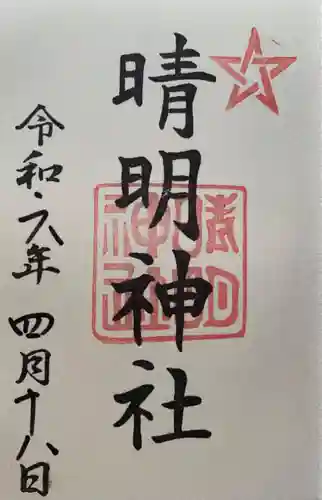 晴明神社
令和六年 四月十八日
晴明
神社